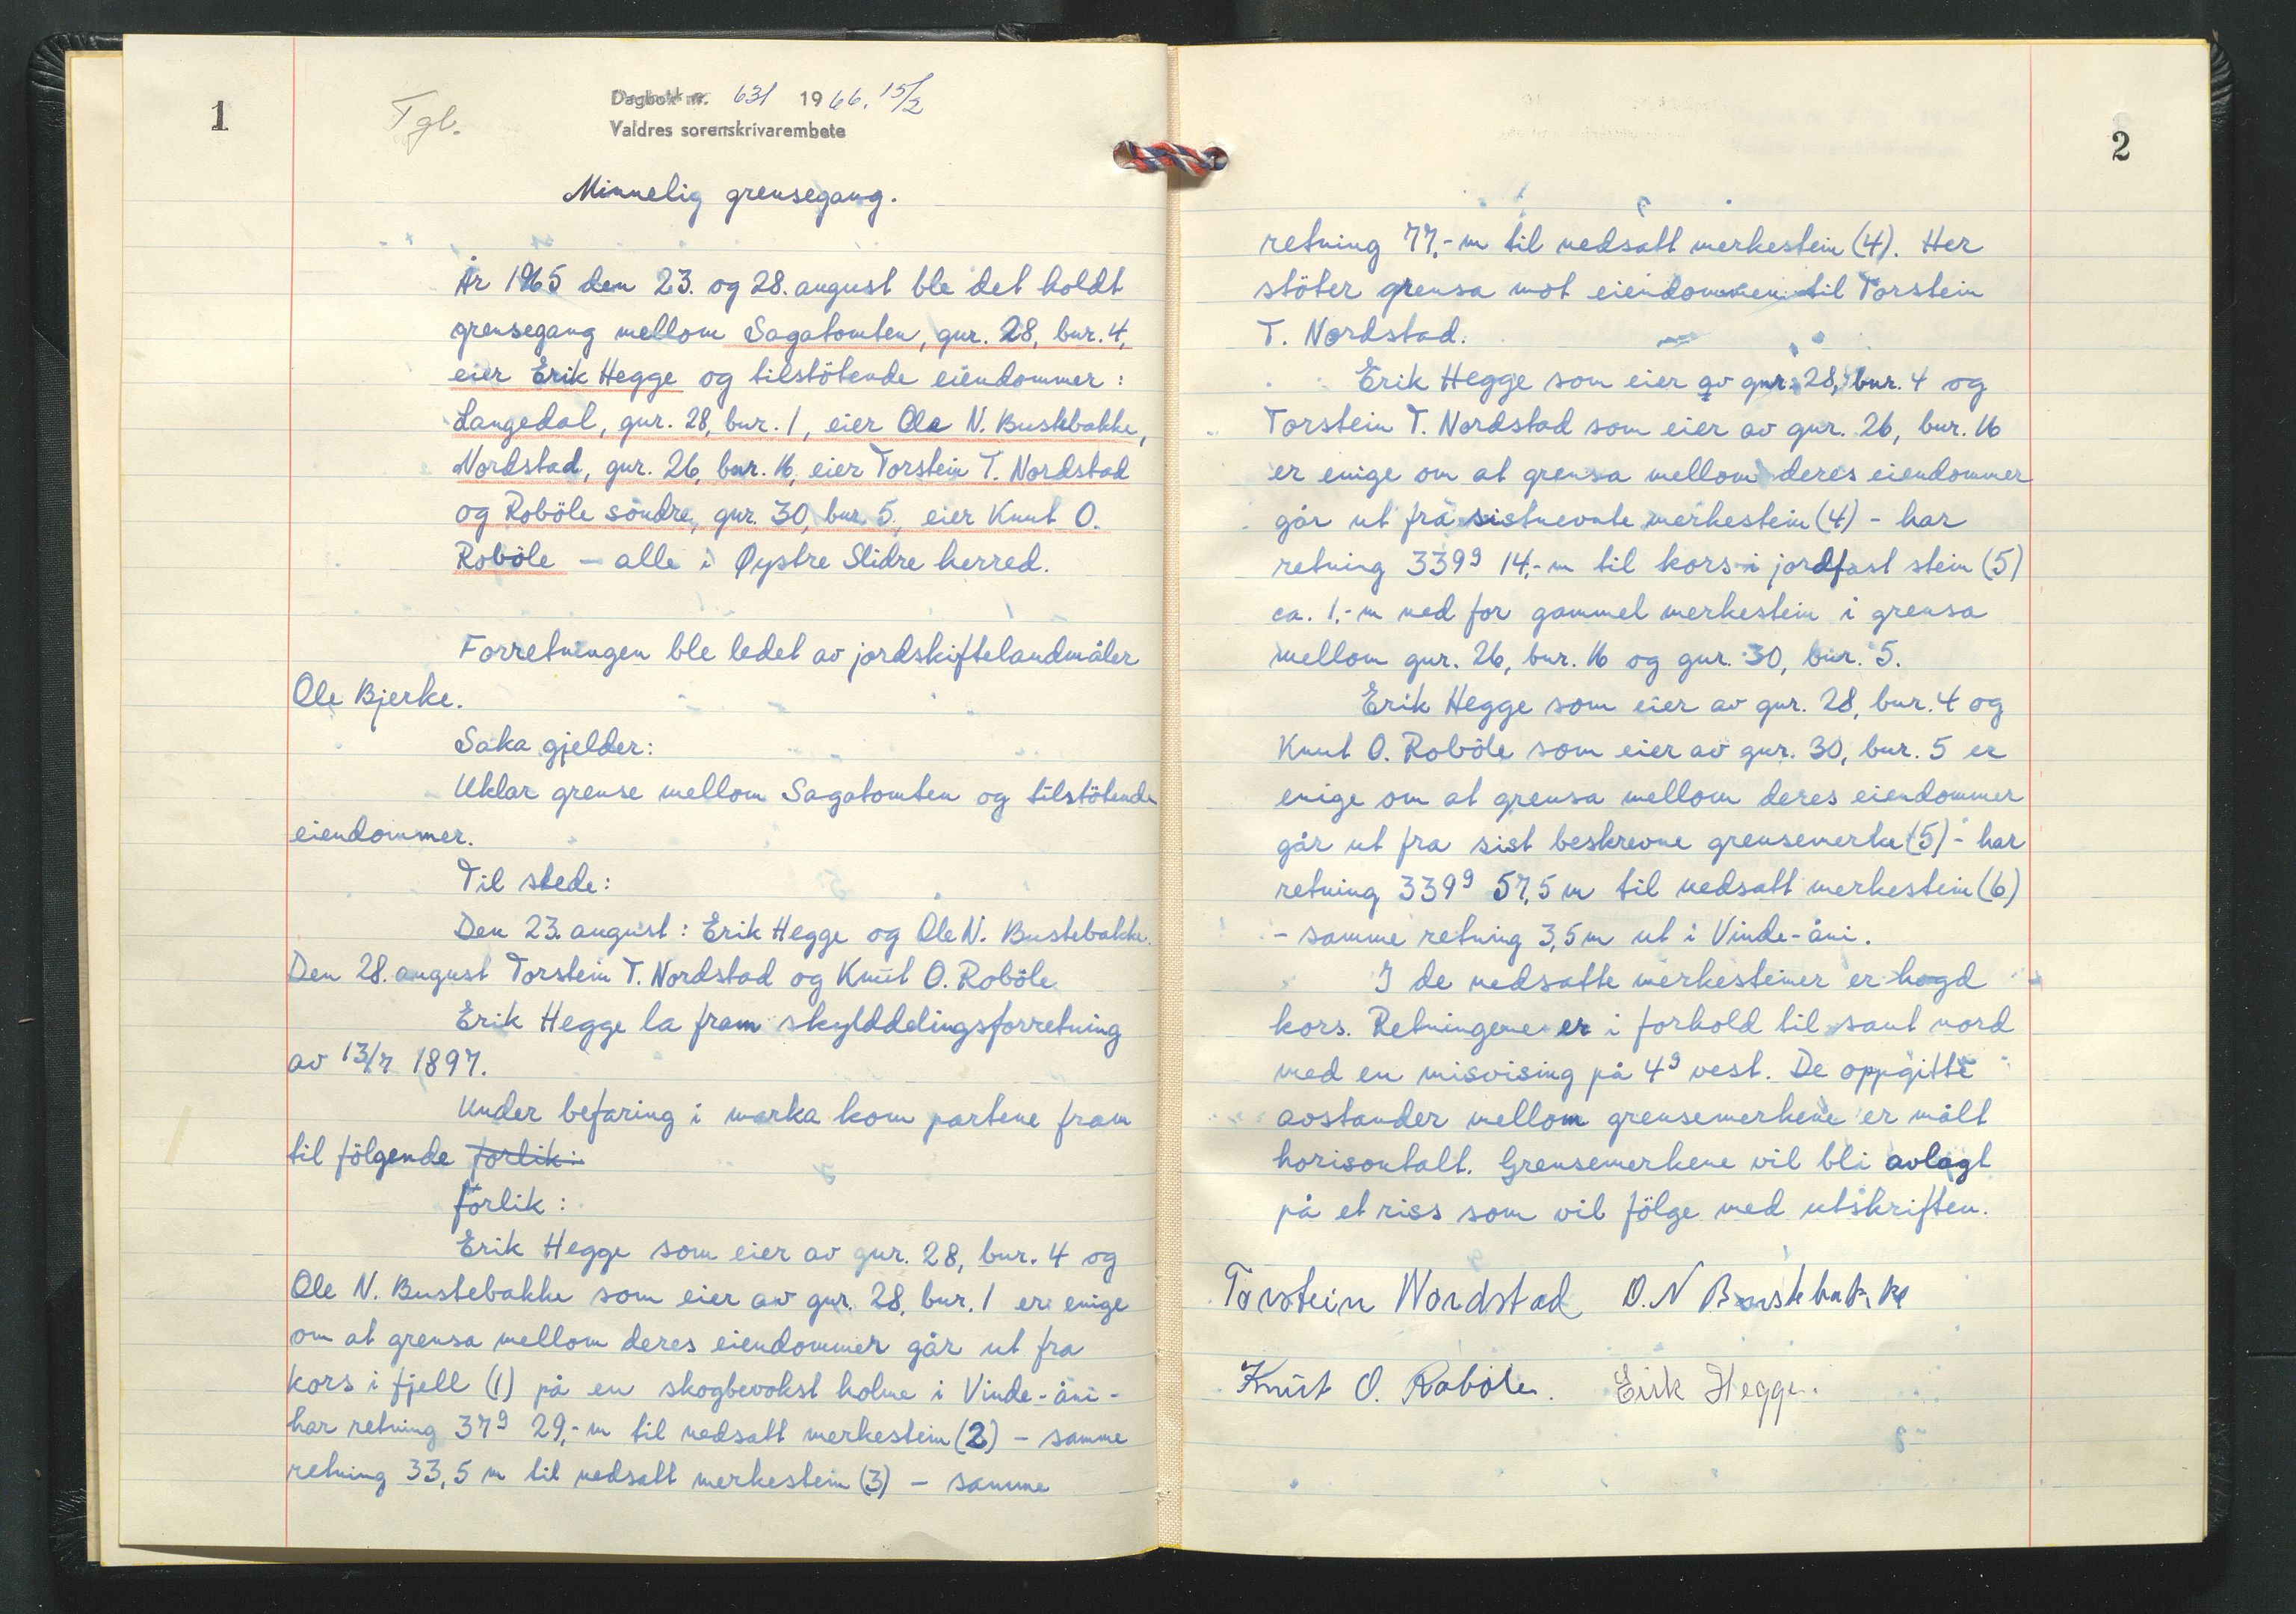 1
Tgl.
Dagbok nr. 631 1966. 15/2
Valdres sorenskrivarembete
Minnelig grensegang.
År 1965 den 23. og 28. august ble det holdt
grensegang mellom Sagatomten, gnr. 28, bnr. 4,
eier Erik Hegge og tilstötende eiendommer:
Langedal, gnr. 28, bnr. 1, eier Ole N. Bustebakke,
Nordstad, gnr. 26, bnr. 16, eier Torstein T. Nordstad
og Roböle söndre, gnr. 30, bnr. 5, eier Knut O.
Roböle – alle i Øystre Slidre herred.
Forretningen ble ledet av jordskiftelandmåler
Ole Bjerke.
Saka gjelder:
Uklar grense mellom Sagatomten og tilstötende
eiendommer.
Til stede:
Den 23. august: Erik Hegge og Ole N. Bustebakke.
Den 28. august Torstein T. Nordstad og Knut O. Roböle
Erik Hegge la fram skylddelingsforretning
av 13/7 1897.
Under befaring i marka kom partene fram
til fölgende forlik:
forlik:
Erik Hegge som eier av gnr. 28, bnr. 4 og
Ole N. Bustebakke som eier av gnr. 28, bnr. 1 er enige
om at grensa mellom deres eiendommer går ut fra
kors i fjell (1) på en skogbevokst holme i Vinde-åni -
har retning 37g 29,- m til nedsatt merkestein (2) – samme
retning 33,5 m til nedsatt merkestein (3) – samme
2
retning 77,- m til nedsatt merkestein (4). Her
stöter grensa mot eiendommen til Torstein
T. Nordstad.
Erik Hegge som eier av gnr. 28, bnr. 4 og
Torstein T. Nordstad som eier av gnr. 26, bnr. 16
er enige om at grensa mellom deres eiendommer
går ut fra sistnevnte merkestein (4) - har
retning 339g 14,- m til kors i jordfast stein (5)
ca. 1,- m ned for gammel merkestein i grensa
mellom gnr. 26, bnr. 16 og gnr. 30, bnr. 5.
Erik Hegge som eier av gnr. 28, bnr. 4 og
Knut O. Roböle som eier av gnr. 30, bnr. 5 er
enige om at grensa mellom deres eiendommer
går ut fra sist beskrevne grensemerke (5) - har
retning 339g 57,5 m til nedsatt merkestein (6)
- samme retning 3,5 m ut i Vinde-åni.
I de nedsatte merkesteiner er hogd
kors. Retningene er i forhold til sant nord
med en misvising på 4g vest. De oppgitte
avstander mellom grensemerkene er målt
horisontalt. Grensemerkene vil bli avlagt
på et riss som vil fölge med utskriften.
Torstein Nordstad O. N Bustebakke
Knut O. Roböle. Erik Hegge.